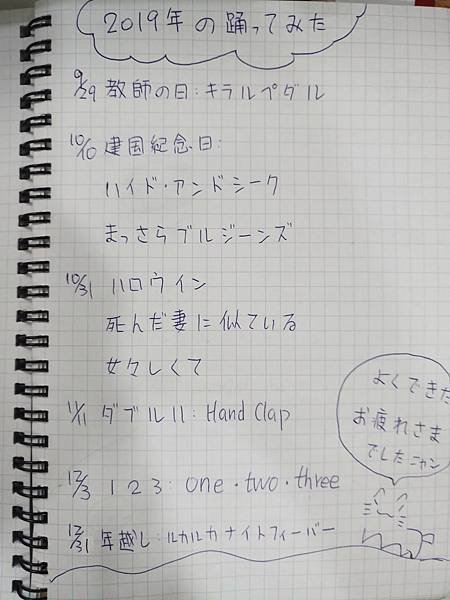 2019年の踊ってみた
9/29 教師の日:キラルペダル
10/10 建国紀念日:
ハイド・アンドシーク
まっさらブルジーンズ
10/31 ハロウィン
死んだ妻に似ている
女々しくて
11/11 ダブル11:Hand Clap
12/3 1 2 3:one・two・three
12/31 年越し:ルカルカナイトフィーバー
よくできた
お疲れさま
でしたニャン